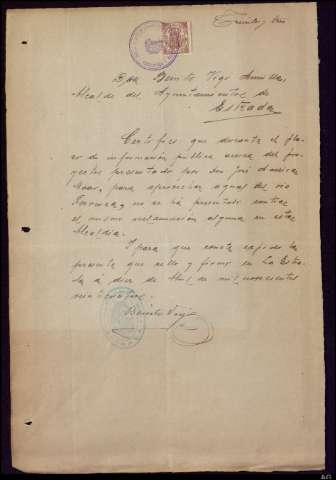 Treinta y tres
Don Benito Vigo
Alcalde del Ayuntamiento de
Estrada
Certifico que durante el pla-
zo de información pública acerca del pro-
yecto presentado por Don José
para aprovechar aguas del río
no se ha presentado contra
el mismo reclamación alguna en esta
Alcaldía.
Y para que conste expido la
presente que sello y firmo en La Estra-
da á diez de de mil novecientos
Benito Vigo